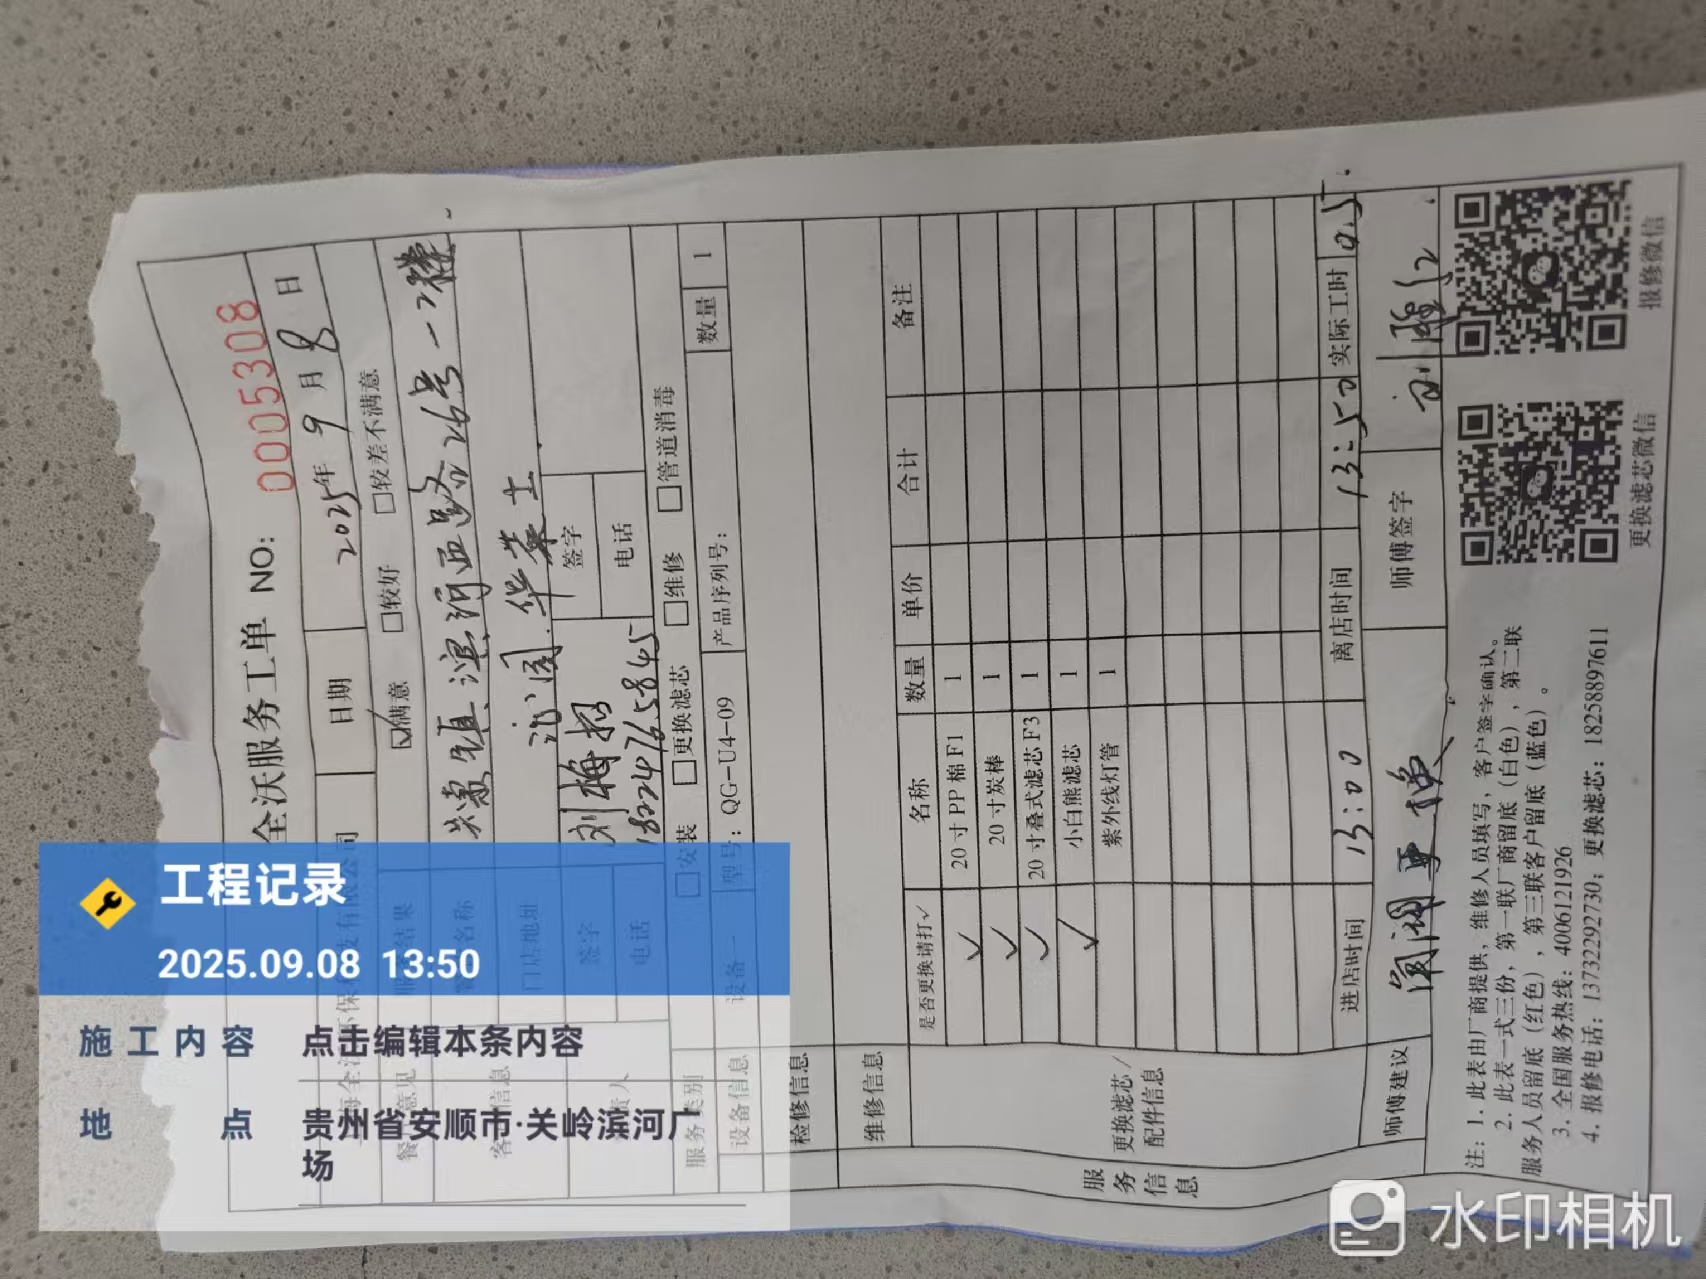 全沃服务工单 NO: 0005308
日期 2025年 9 月 8 日
☑满意 □较好 □较差不满意
关索镇滨河西路26号一2楼
华莱士
刘梅招 签字
18224765845 电话
□安装 □更换滤芯 □维修 □管道消毒
服务类别
设备信息 设备一 型号: QG-U4-09 产品序列号: 数量 1
检修信息
维修信息
是否更换请打√ 名称 数量 单价 合计 备注
✓ 20寸PP棉F1 1
✓ 20寸炭棒 1
✓ 20寸叠式滤芯F3 1
✓ 小白熊滤芯 1
紫外线灯管 1
更换滤芯/
配件信息
服务信息
进店时间 13:00 离店时间 13:50 实际工时 0.5
师傅建议 师傅签字
注: 1. 此表由厂商提供, 维修人员填写, 客户签字确认。
2. 此表一式三份, 第一联厂商留底 (白色), 第二联
服务人员留底 (红色), 第三联客户留底 (蓝色)。
3. 全国服务热线: 4006121926
4. 报修电话: 17732292730; 更换滤芯: 18258897611
更换滤芯微信
报修微信
工程记录
2025.09.08 13:50
施工内容 点击编辑本条内容
地点 贵州省安顺市·关岭滨河广
场
水印相机